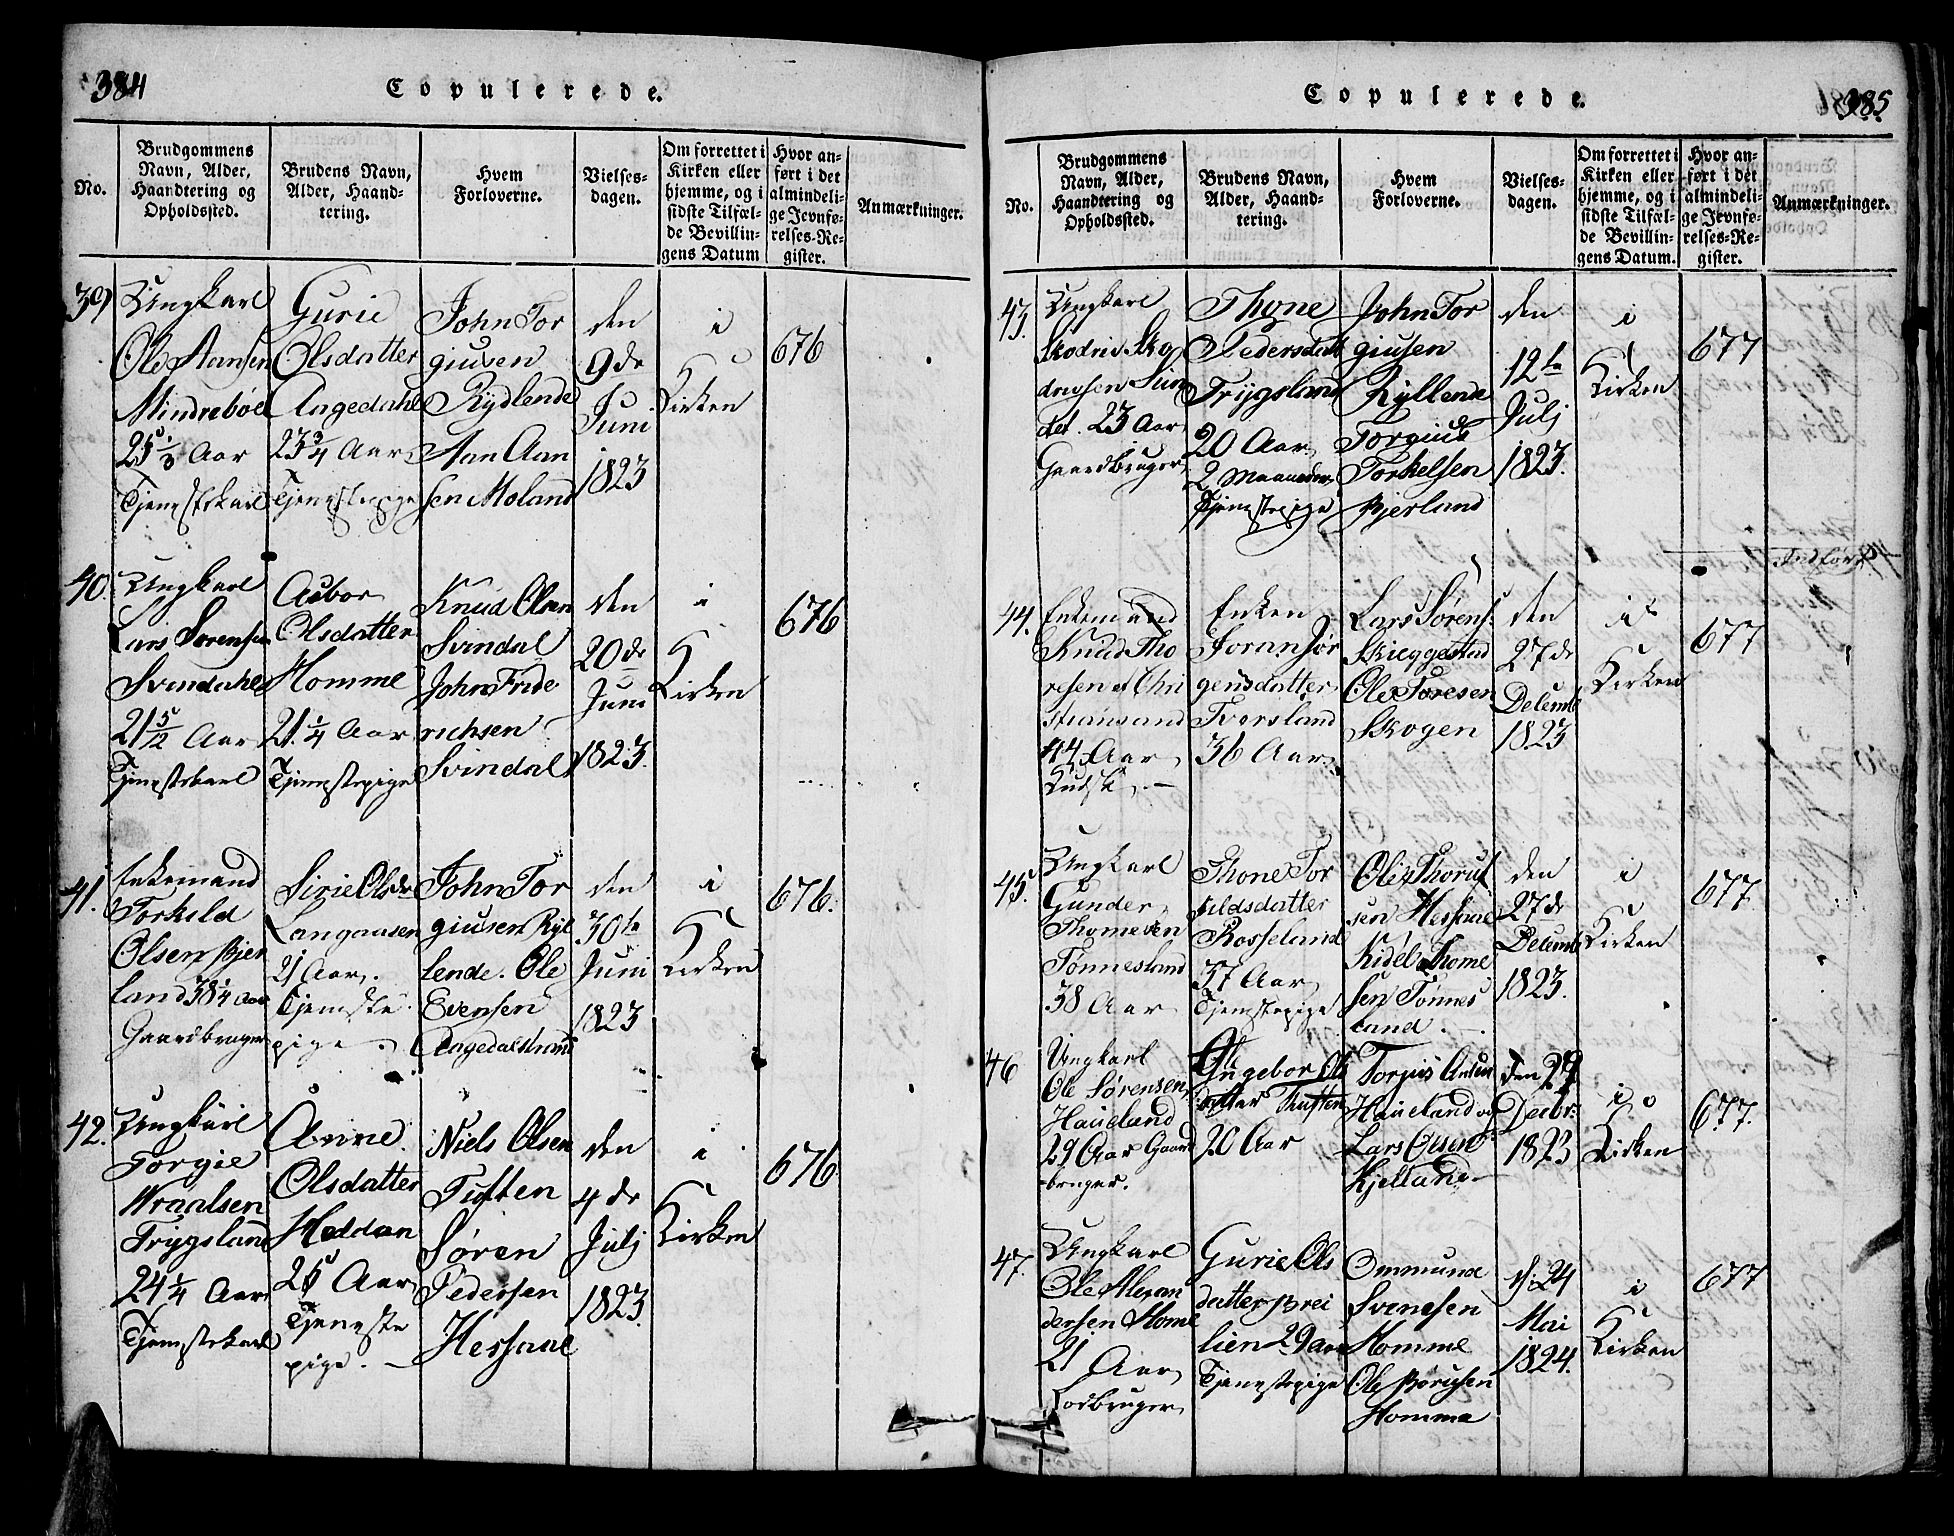 384
Copulerede.
No.
Brudgommens
Navn, Alder,
Haandtering og
Opholdssted.
Brudens Navn,
Alder, Haand-
tering.
Hvem
Forloverne.
Vielses-
dagen.
Om forrettet i
Kirken eller
hjemme, og i
sidste Tilfæl-
de Bevillin-
gens Datum
Hvor an-
ført i det
almindeli-
ge Jevnfø-
relses-Re-
gister.
Anmærkninger.
39
Ungkarl
Ole Aansen
Mindrebøe
25 1/3 Aar
Tjenestekarl
Gurie
Olsdatter
Aagedahl
23 3/4 Aar
Tjenestepige
John Tor
giusen
Rydlende
Aan Aan
sen Moland
den
9de
Juni
1823
i
Kirken
676
40.
Ungkarl
Lars Sørensen
Svindahl
21 5/12 Aar
Tjenestekarl
Aasbor
Olsdatter
Homme
21 1/4 Aar
Tjenestepige
Knud Olsen
Svindal
John Fride
richsen
Svindal
den
20de
Juni
1823.
i
Kirken
676
41.
Enkemand
Torkild
Olsen Bjer
land 38 1/4 Aar
Gaardbruger
Sirie Olsdr
Langaasen
21 Aar.
Tjeneste
pige.
John Tor
giusen Ryl
lende. Ole
Evensen
Aagedalstrand
den
30te
Juni
1823
i
Kirken
676.
42.
Ungkarl
Torgie
Wraalsen
Trygsland
24 1/4 Aar
Tjenestekarl
Anne
Olsdatter
Heddan
25 Aar
Tjeneste
pige.
Niels Olsen
Tuften
Søren
Pedersen
Hessaae
den
4de
Julj
1823.
i
Kirken
676
385
Copulerede.
No.
Brudgommens
Navn, Alder,
Haandtering og
Opholdssted.
Brudens Navn,
Alder, Haand-
tering.
Hvem
Forloverne.
Vielses-
dagen.
Om forrettet i
Kirken eller
hjemme, og i
sidste Tilfæl-
de Bevillin-
gens Datum.
Hvor an-
ført i det
almindeli-
ge Jevnfø-
relses-Re-
gister.
Anmærkninger.
43.
Ungkarl
Skodrie Sko
driesen Sun
det. 23 Aar
Gaardbruger
Thone
Pedersdatt
Trygsland
20 Aar
2 Maaneder
Tjenestepige
John Tor
giusen
Ryllende
Torgius
Torkelsen
Bjerland
den
12te
Julj
1823.
i
Kirken
677
Indført
44.
Enkemand
Knud Tho
resen af Chri
stiansand
44 Aar
Kudsk
Enken
Joran Jør
gensdatter
Iversland
36 Aar
Lars Sørens:
Skieggestad
Ole Toresen
Skogen
den
27de
Decemb
1823
i
Kirken
677
45.
Ungkarl
Gunder
Thomesen
Tønnesland
38 Aar
Thone Tor
kildsdatter
Rosseland
37 Aar
Tjenestepige
Ole Thorus
sen Hessaae
Kidel Thome
sen Tønnes
land.
den
27de
Decemb
1823.
i
Kirken
677
46
Ungkarl
Ole Sørensen
Haueland
29 Aar Gaard
bruger.
Ingebor Ols
datter Thuften
20 Aar
Torjus Aasen
Haueland og
Lars Olsen
Kjelland
den 29
Decbr:
1823
i
Kirken
677.
47.
Ungkarl
Ole Alexan
dersen Homme
21 Aar
Lodbruger
Gurie Ols
datter Brei
lien 29 Aar
Tjenestepige
Ommund
Svensen
Homme
Ole Borusen
Homme
d: 24
Mai
1824.
i
Kirken
677